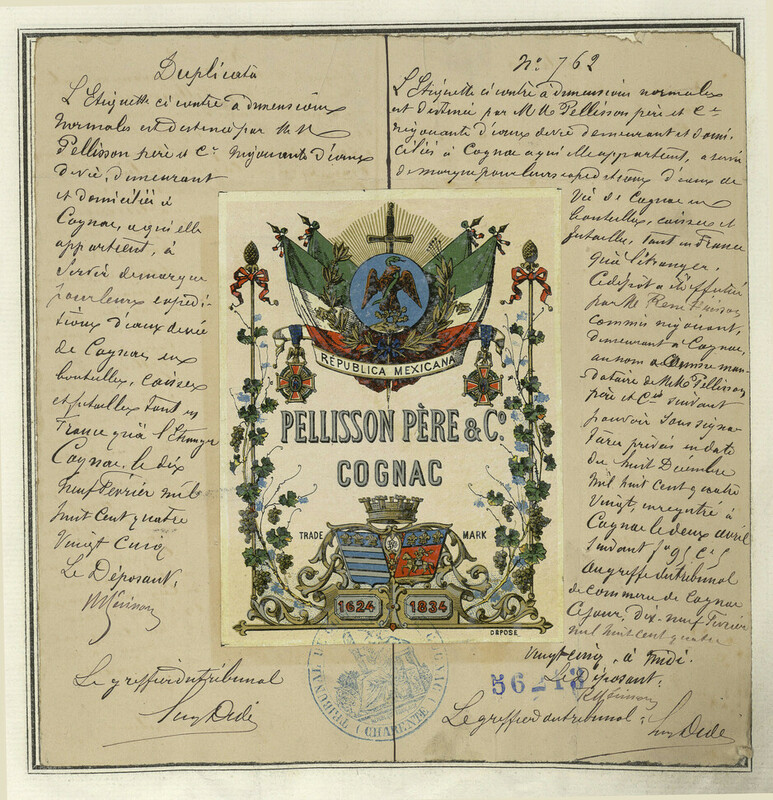 Duplicata
L'Etiquette ci contre a dimensions
normales est destinée par M M
Pellisson père et Cie négociants d'eaux
de vie, demeurant
et domiciliés à
Cognac, a qui elle
appartient, à
servir de marque
pour leurs expédi-
tions d'eaux de vie
de Cognac, en
bouteilles, caisses
et futailles tant en
France qu'à l'étranger
Cognac, le dix
neuf Février mil
huit cent quatre
vingt cinq
Le Déposant,
Le greffier du tribunal
No 762
L'Etiquette ci contre a dimensions normales
est destinée par M M Pellisson père et Cie
négociants d'eaux de vie demeurant et domi-
ciliés à Cognac a qui elle appartient, a servir
de marque pour leurs expéditions d'eaux de
vie de Cognac en
bouteilles, caisses et
futailles, tant en France
qu'à l'étranger.
Ce dépôt a été effectué
par M. René
commis négociant,
demeurant a Cognac,
au nom et comme man-
dataire de M M Pellisson
père et Cie suivant
pouvoir sous signature
privée en date
du huit Decembre
mil huit cent quatre
vingt, enregistré à
Cognac le deux avril
suivant
au greffe du tribunal
de commerce de Cognac
Ce jour, dix-neuf Février
mil huit cent quatre
vingt cinq, à midi.
Le Déposant:
Le greffier du tribunal:
REPUBLICA MEXICANA
PELLISSON PÈRE & Co.
COGNAC
TRADE MARK
1624 1834
DÉPOSÉ
TRIBUNAL
COGNAC
(CHARENTE)